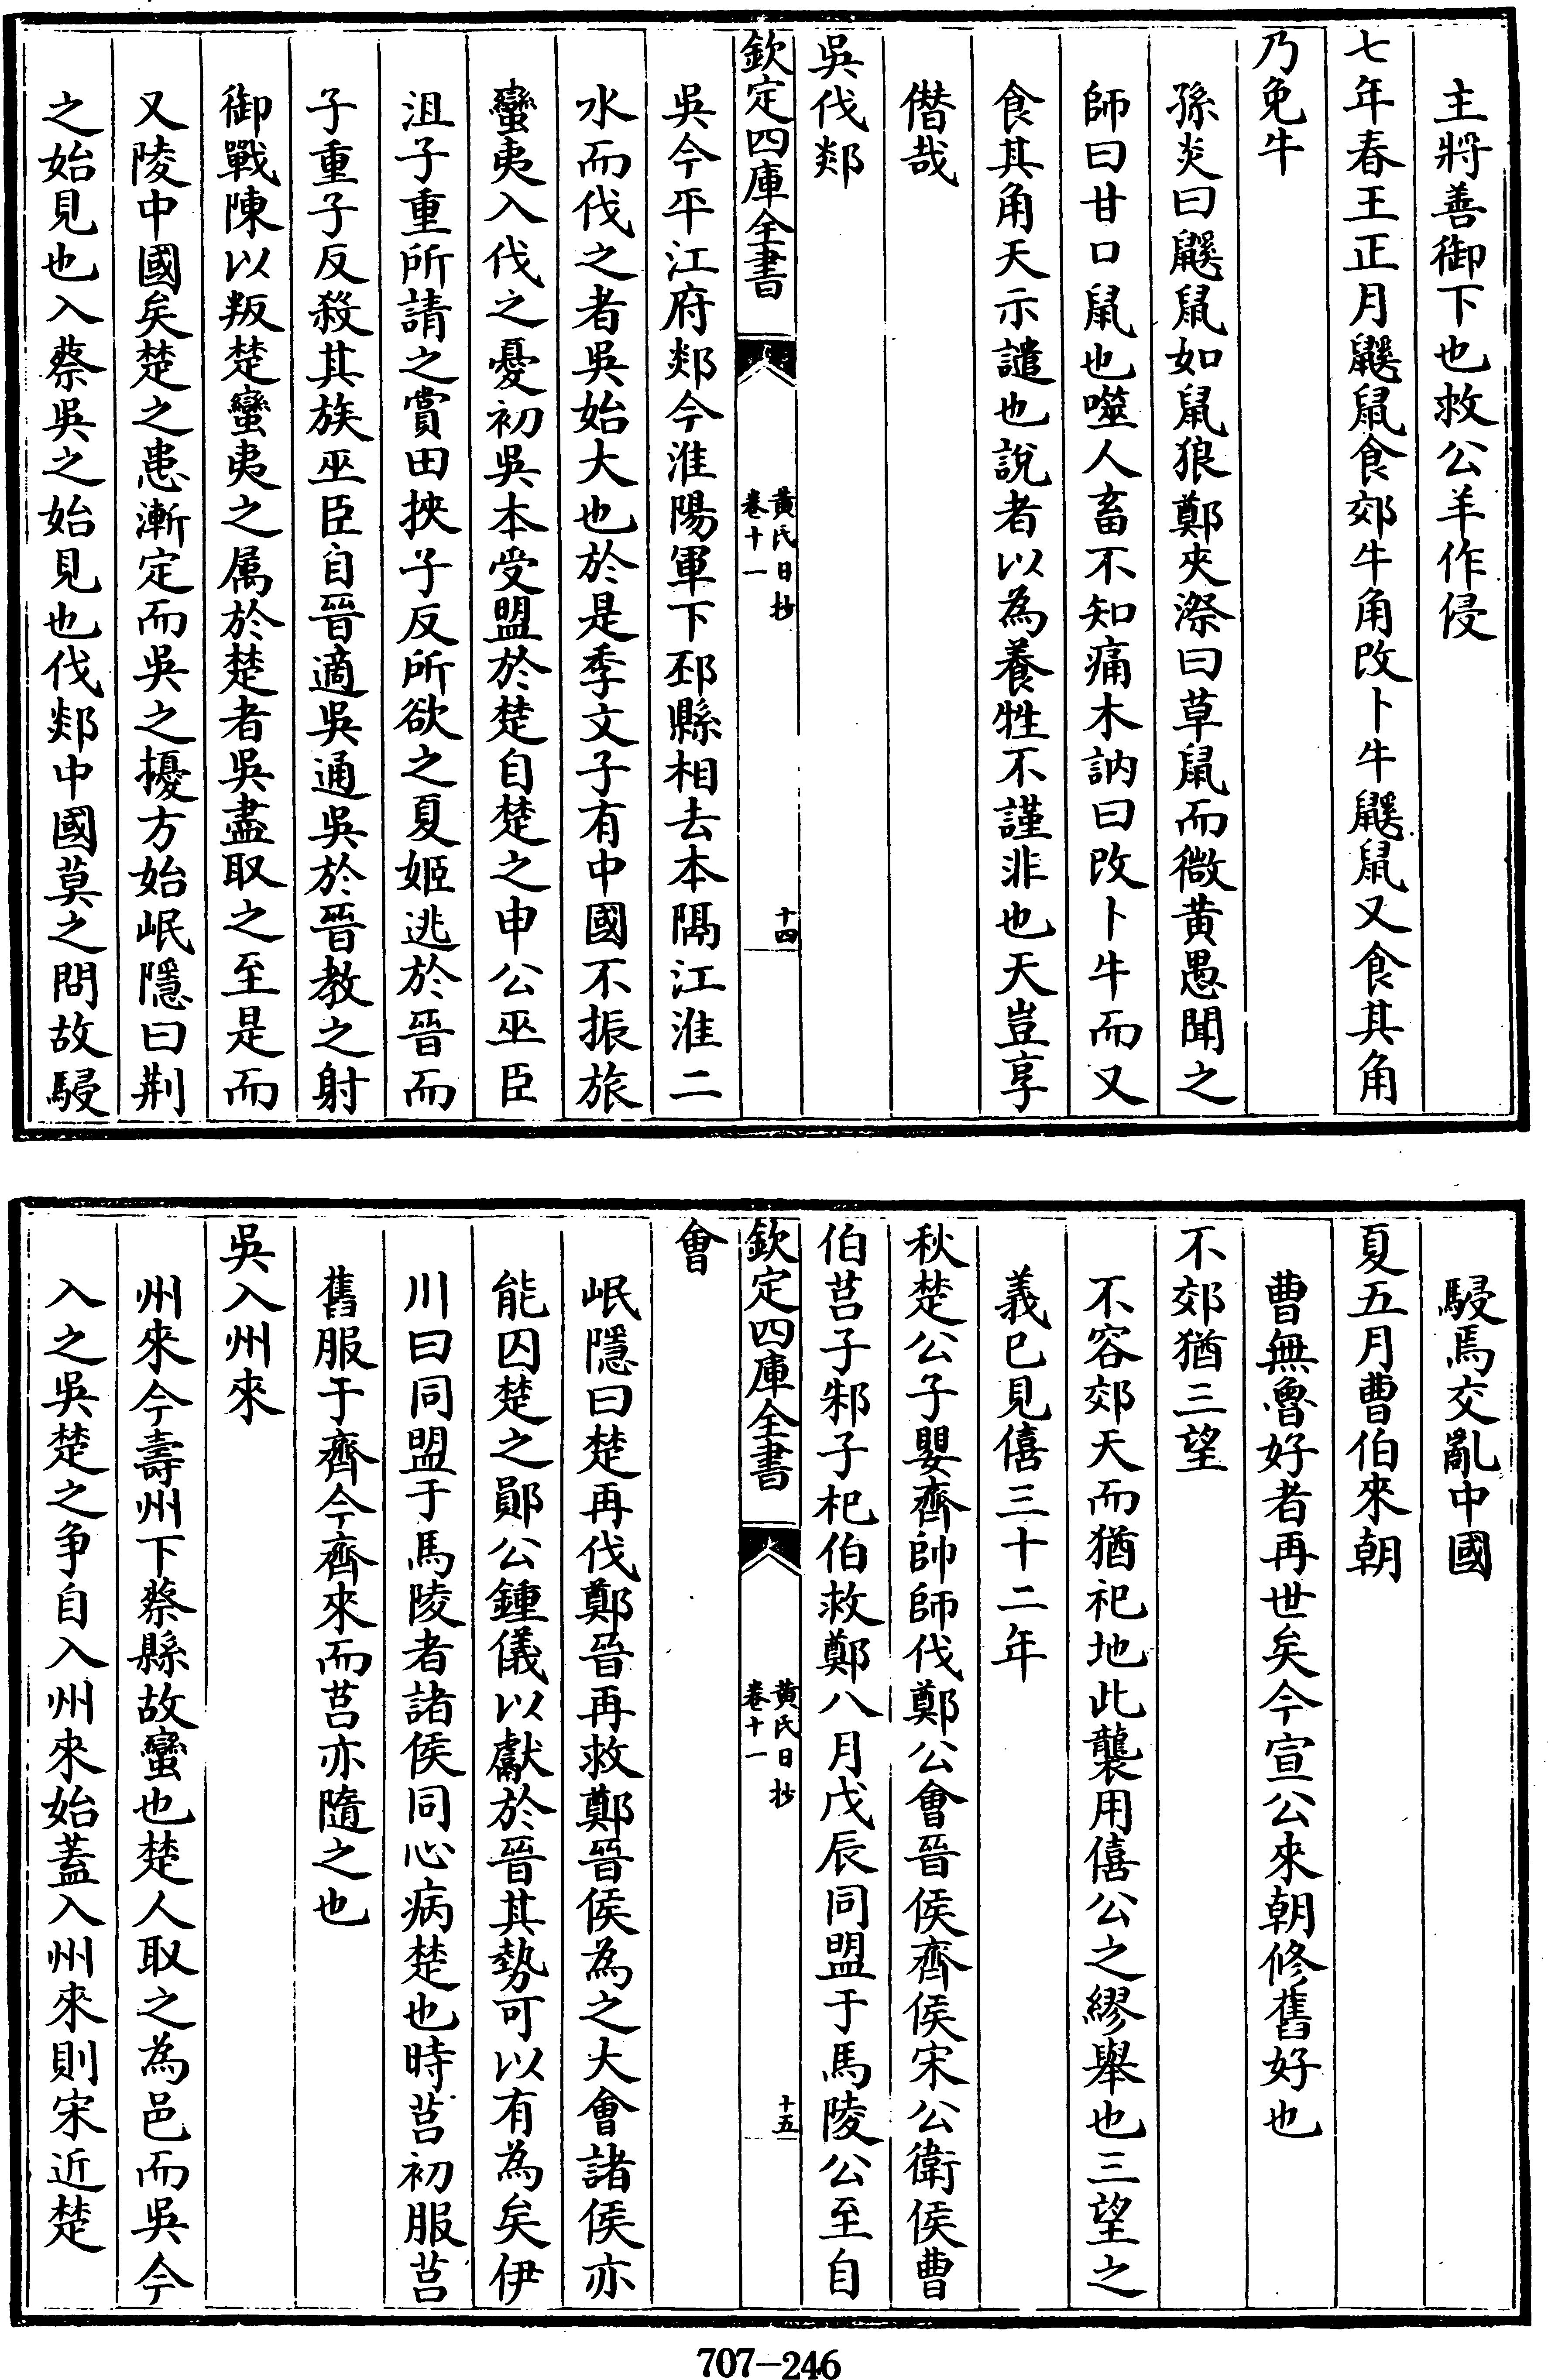 主將善御下也救公羊作侵
七年春王正月鼷鼠食郊牛角改卜牛鼷鼠又食其角
乃免牛
孫炎曰鼷鼠如鼠狼鄭夾漈曰草鼠而微黄愚聞之
師曰甘口鼠也噬人畜不知痛木訥曰改卜牛而又
食其角天示譴也說者以為養牲不謹非也天豈享
僣哉
吳伐郯
欽定四庫全書
黄氏日抄
卷十一
十四
吳今平江府郯今淮陽軍下邳縣相去本隔江淮二
水而伐之者吳始大也於是季文子有中國不振旅
蠻夷入伐之憂初吳本受盟於楚自楚之申公巫臣
沮子重所請之賞田挾子反所欲之夏姬逃於晉而
子重子反殺其族巫臣自晉適吳通吳於晉教之射
御戰陳以叛楚蠻夷之属於楚者吳盡取之至是而
又陵中國矣楚之患漸定而吳之擾方始岷隱曰荆
之始見也入蔡吳之始見也伐郯中國莫之問故駸
駸焉交亂中國
夏五月曹伯來朝
曹無魯好者再世矣今宣公來朝修舊好也
不郊猶三望
不容郊天而猶祀地此襲用僖公之繆舉也三望之
義已見僖三十二年
秋楚公子嬰齊帥師伐鄭公會晉侯齊侯宋公衛侯曹
伯莒子邾子杞伯救鄭八月戊辰同盟于馬陵公至自
欽定四庫全書
黄氏日抄
卷十一
十五
會
岷隱曰楚再伐鄭晉再救鄭晉侯為之大會諸侯亦
能囚楚之鄖公鍾儀以獻於晉其勢可以有為矣伊
川曰同盟于馬陵者諸侯同心病楚也時莒初服莒
舊服于齊今齊來而莒亦隨之也
吳入州來
州來今壽州下蔡縣故蠻也楚人取之為邑而吳今
入之吳楚之争自入州來始蓋入州來則宋近楚
707—246